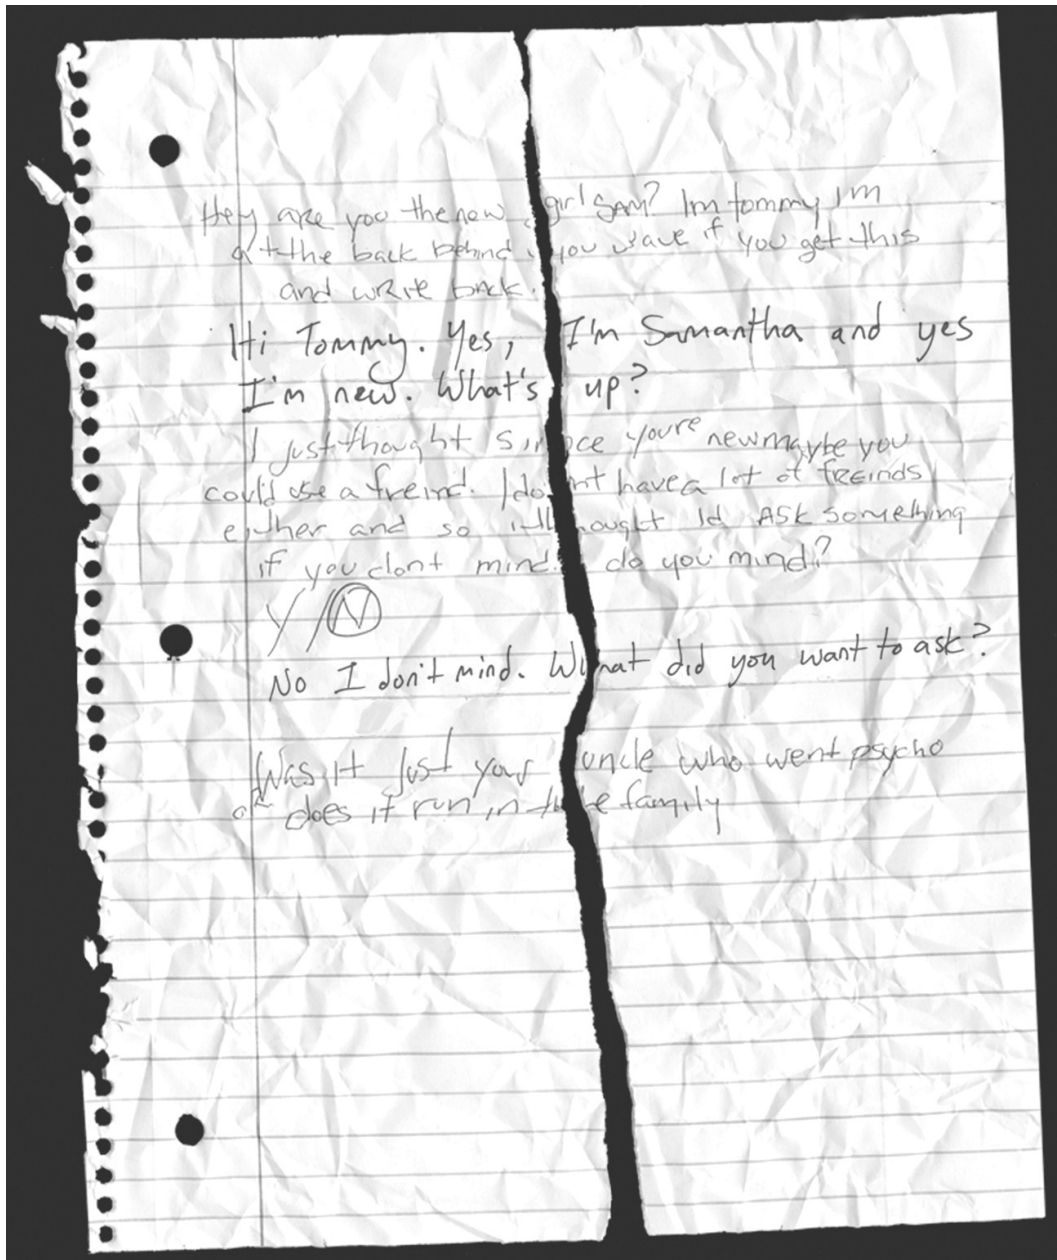 Hey are you the new girl SAM? Im tommy Im
at the back behind you wave if you get this
and write back.
Hi Tommy. Yes, I'm Samantha and yes
I'm new. What's up?
I just thought since youre new maybe you
could use a freind. I dont have a lot of freinds
either and so i thought Id ASK something
if you dont mind. do you mind?
Y/N
No I don't mind. What did you want to ask?
Was it just your uncle who went psycho
or does it run in the family